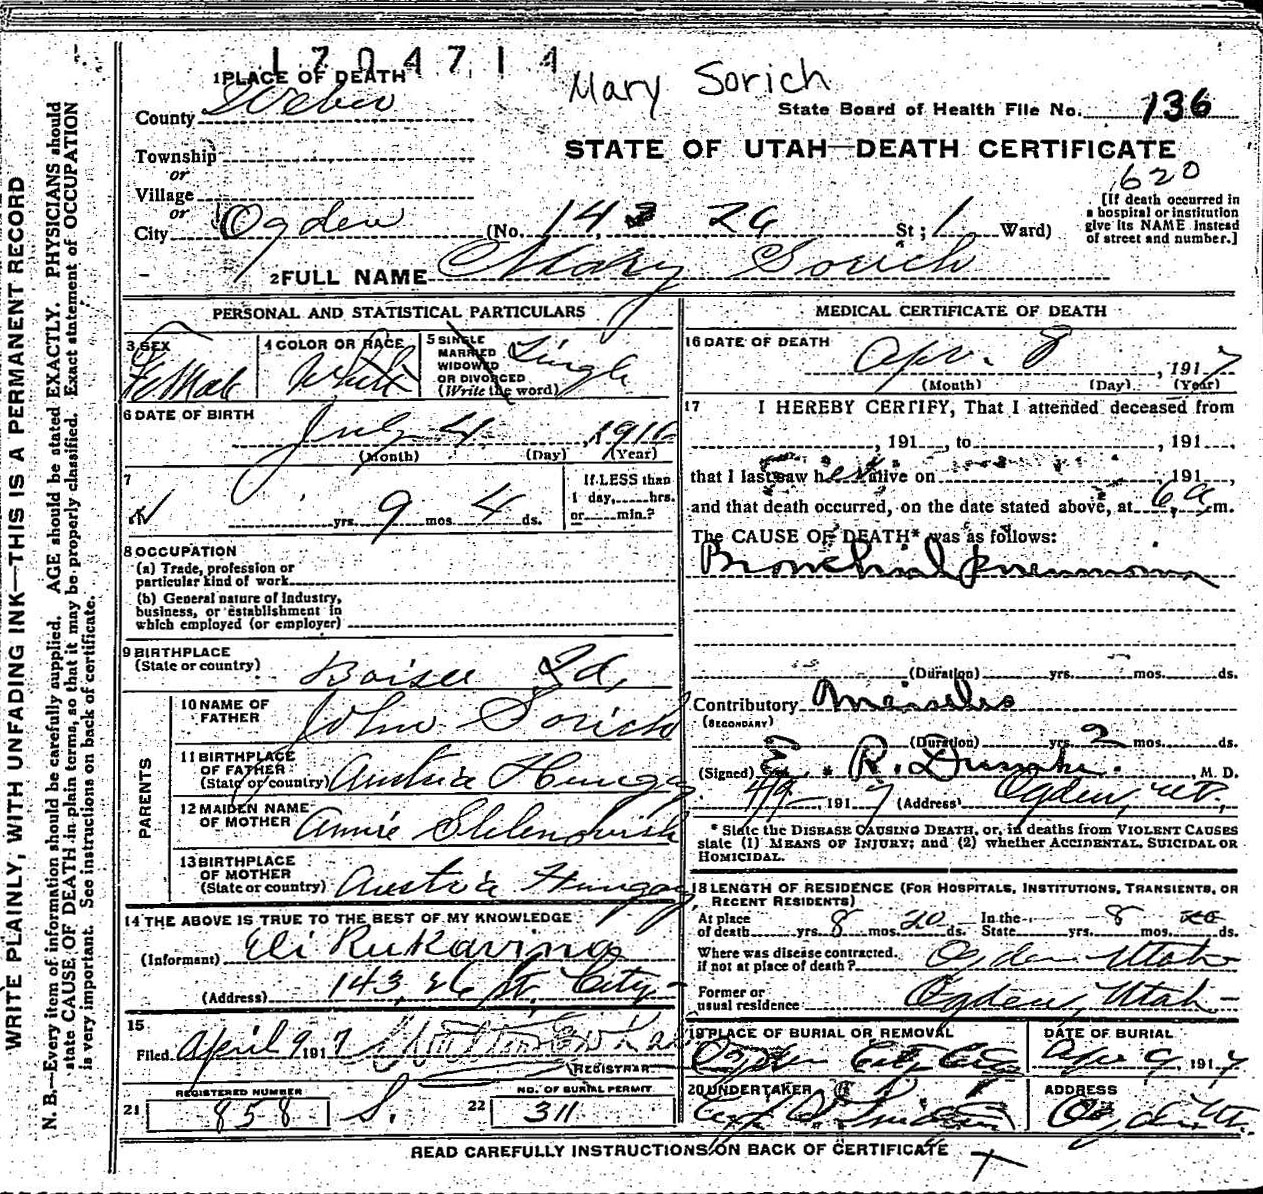 1704714
Mary Sorich
1 PLACE OF DEATH
County Weber
State Board of Health File No. 136
STATE OF UTAH—DEATH CERTIFICATE
620
Township
or
Village
or
City Ogden (No. 143 26 St; 1 Ward)
[If death occurred in
a hospital or institution
give its NAME instead
of street and number.]
2 FULL NAME Mary Sorich
PERSONAL AND STATISTICAL PARTICULARS
3 SEX
Female
4 COLOR OR RACE
White
5 SINGLE
MARRIED
WIDOWED
OR DIVORCED
(Write the word)
Single
6 DATE OF BIRTH
July 4, 1916
(Month) (Day) (Year)
7
yrs. 9 mos. 4 ds.
If LESS than
1 day, hrs.
or min.?
8 OCCUPATION
(a) Trade, profession or
particular kind of work
(b) General nature of Industry,
business, or establishment in
which employed (or employer)
9 BIRTHPLACE
(State or country) Boise Id,
PARENTS
10 NAME OF
FATHER John Sorich
11 BIRTHPLACE
OF FATHER
(State or country) Austria Hungry
12 MAIDEN NAME
OF MOTHER Annie
13 BIRTHPLACE
OF MOTHER
(State or country) Austria Hungry
14 THE ABOVE IS TRUE TO THE BEST OF MY KNOWLEDGE
(Informant) Eli Rukavina
(Address) 143, 26 St. City
15
Filed April 9 1917
REGISTRAR
REGISTERED NUMBER
21 858 S.
NO. OF BURIAL PERMIT
22 311
MEDICAL CERTIFICATE OF DEATH
16 DATE OF DEATH
Apr. 8, 1917
(Month) (Day) (Year)
17 I HEREBY CERTIFY, That I attended deceased from
, 191 , to , 191 ,
that I last saw her alive on , 191 ,
and that death occurred, on the date stated above, at 6 a m.
The CAUSE OF DEATH* was as follows:
Bronchial pneumonia
(Duration) yrs. mos. ds.
Contributory Measles
(SECONDARY)
(Duration) yrs. 2 mos. ds.
(Signed) E. R. Dumke. , M. D.
4/9 1917 (Address) Ogden, Ut.
* State the DISEASE CAUSING DEATH, or, in deaths from VIOLENT CAUSES
state (1) MEANS OF INJURY; and (2) whether ACCIDENTAL, SUICIDAL OR
HOMICIDAL.
18 LENGTH OF RESIDENCE (FOR HOSPITALS, INSTITUTIONS, TRANSIENTS, OR
RECENT RESIDENTS)
At place
of death yrs. 8 mos. 20 ds.
In the
State yrs. 8 mos. 20 ds.
Where was disease contracted,
if not at place of death? Ogden Utah
Former or
usual residence Ogden, Utah
19 PLACE OF BURIAL OR REMOVAL
Ogden City
DATE OF BURIAL
Apr 9, 1917
20 UNDERTAKER
ADDRESS
Ogden Ut.
READ CAREFULLY INSTRUCTIONS ON BACK OF CERTIFICATE
WRITE PLAINLY, WITH UNFADING INK—THIS IS A PERMANENT RECORD
N. B.—Every item of information should be carefully supplied. AGE should be stated EXACTLY. PHYSICIANS should
state CAUSE OF DEATH in plain terms, so that it may be properly classified. Exact statement of OCCUPATION
is very important. See instructions on back of certificate.